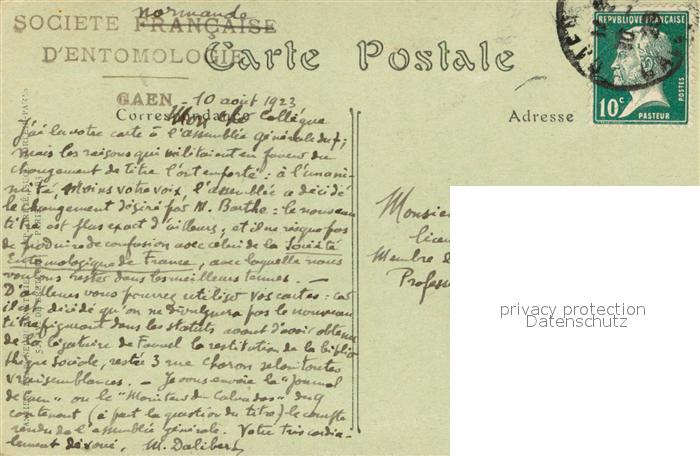 normande
SOCIETE FRANÇAISE
D'ENTOMOLOGIE
Carte Postale
CAEN, 10 août 1923
Correspondance
Adresse
REPUBLIQUE FRANÇAISE
10c
POSTES
PASTEUR
Mon cher Collègue
J'ai lu votre carte à l'assemblée générale du 7;
mais les raisons qui militaient en faveur du
changement de titre l'ont emporté: à l'unani-
mité, moins votre voix, l'assemblée a décidé
le changement désiré par M. Barthe: le nouveau
titre est plus exact d'ailleurs, et il ne risque pas
de produire de confusion avec celui de la Société
Entomologique de France, avec laquelle nous
voulons rester dans les meilleurs termes. —
D'ailleurs vous pouvez utiliser vos cartes: car
il est décidé qu'on ne divulguera pas le nouveau
titre figurant dans les statuts avant d'avoir obtenu
de la légataire de Fauvel la restitution de la biblio
thèque sociale, restée 3 rue Choron selon toutes
vraisemblances. — Je vous envoie le "Journal
de Caen" ou le "Moniteur du Calvados" du 9
contenant (à part la question du titre) le compte
rendu de l'assemblée générale. Votre très cordia-
lement dévoué, M. Dalibert
Monsieur
licen
Membre d
Profess
privacy protection
Datenschutz